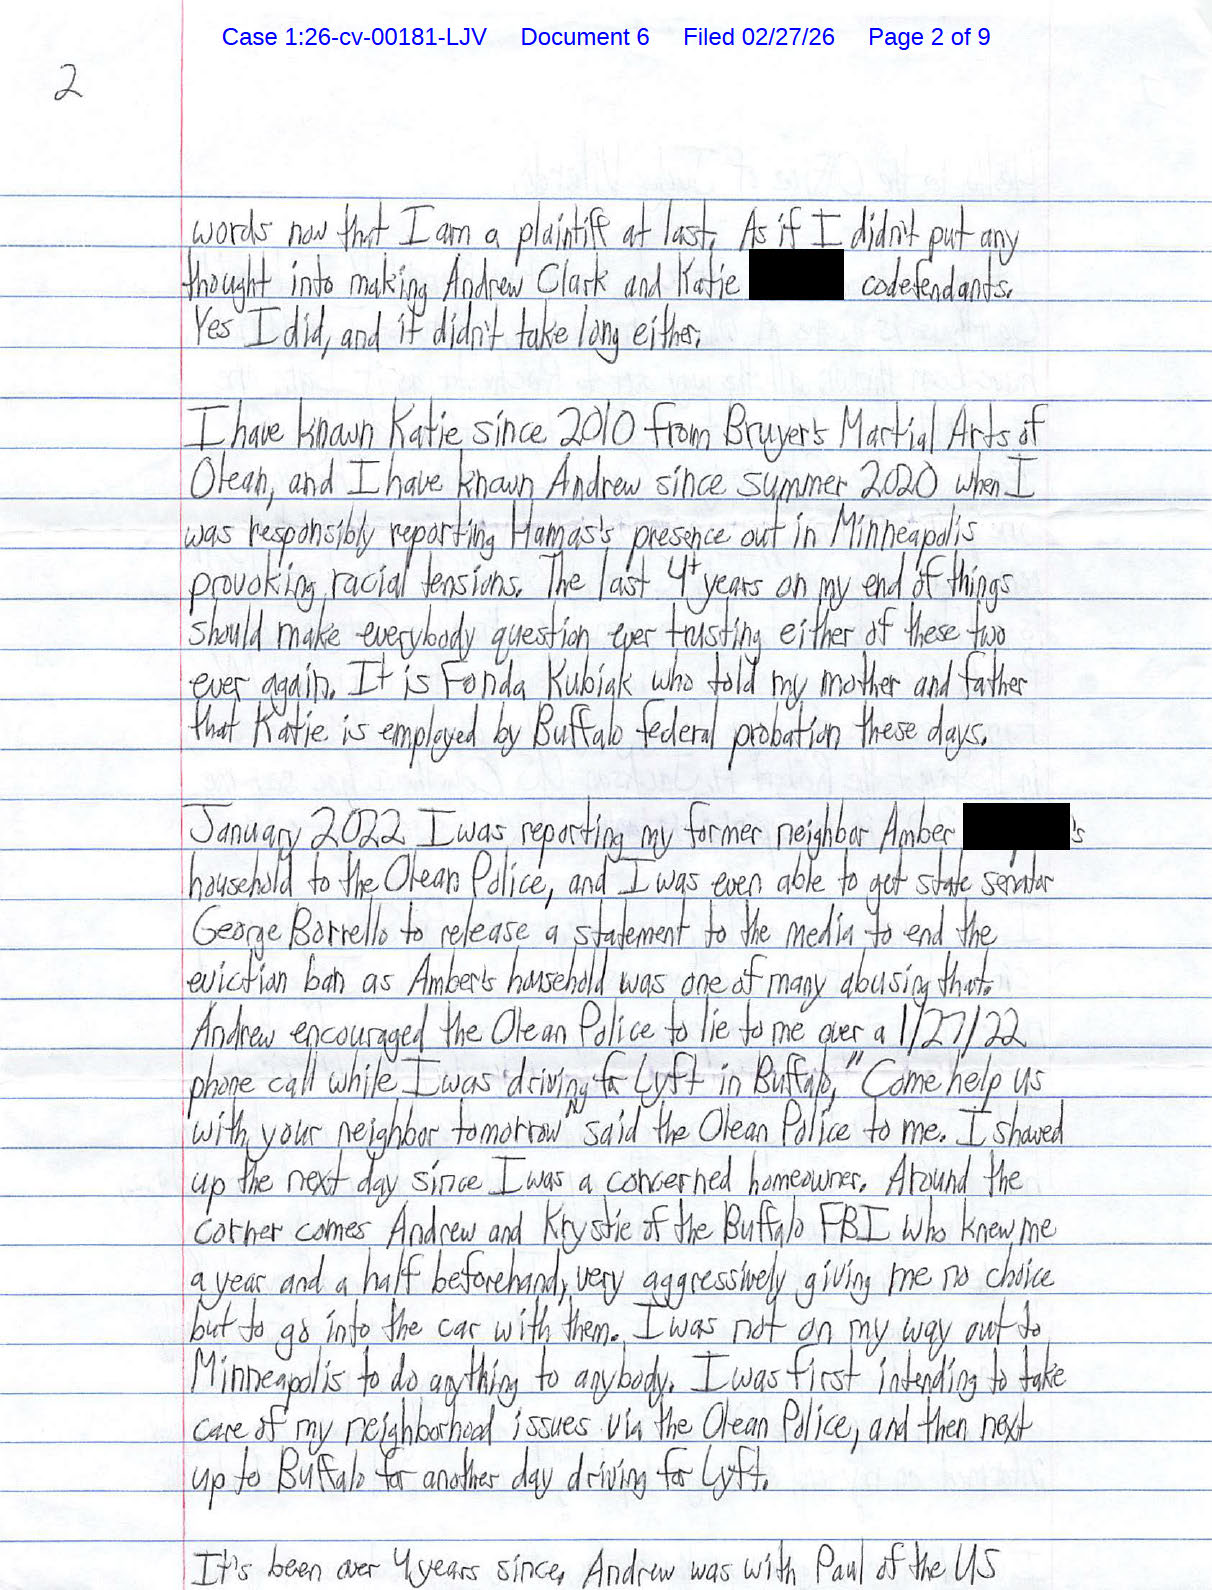 Case 1:26-cv-00181-LJV Document 6 Filed 02/27/26 Page 2 of 9
2
words now that I am a plaintiff at last. As if I didn't put any
thought into making Andrew Clark and Katie codefendants.
Yes I did, and it didn't take long either.
I have known Katie since 2010 from Bruyer's Martial Arts of
Olean, and I have known Andrew since summer 2020 when I
was responsibly reporting Hamas's presence out in Minneapolis
provoking racial tensions. The last 4+ years on my end of things
should make everybody question ever trusting either of these two
ever again. It is Fonda Kubiak who told my mother and father
that Katie is employed by Buffalo federal probation these days.
January 2022 I was reporting my former neighbor Amber 's
household to the Olean Police, and I was even able to get state senator
George Borrello to release a statement to the media to end the
eviction ban as Amber's household was one of many abusing that.
Andrew encouraged the Olean Police to lie to me over a 1/27/22
phone call while I was driving for Lyft in Buffalo, "Come help us
with your neighbor tomorrow" said the Olean Police to me. I showed
up the next day since I was a concerned homeowner. Around the
corner comes Andrew and Krystie of the Buffalo FBI who knew me
a year and a half beforehand, very aggressively giving me no choice
but to go into the car with them. I was not on my way out to
Minneapolis to do anything to anybody. I was first intending to take
care of my neighborhood issues via the Olean Police, and then next
up to Buffalo for another day driving for Lyft.
It's been over 4 years since. Andrew was with Paul of the US